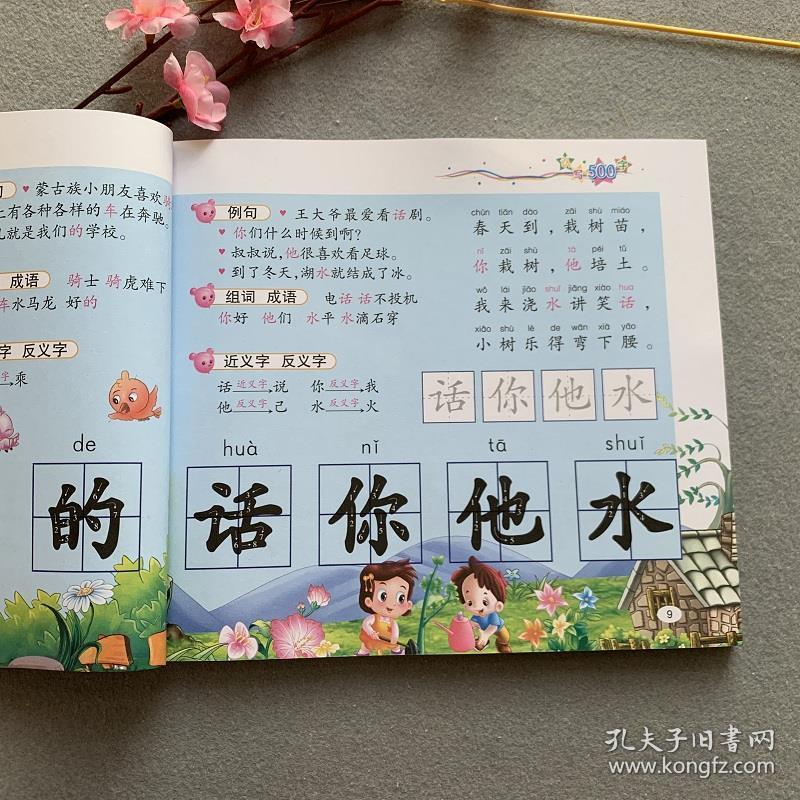 句 ♥ 蒙古族小朋友喜欢骑
上有各种各样的车在奔驰。
就是我们的学校。
成语 骑士 骑虎难下
车水马龙 好的
字 反义字
乘
de
的
写500字
例句 ♥ 王大爷最爱看话剧。
♥ 你们什么时候到啊?
♥ 叔叔说,他很喜欢看足球。
♥ 到了冬天,湖水就结成了冰。
组词 成语 电话 话不投机
你好 他们 水平 水滴石穿
近义字 反义字
话 近义字 说 你 反义字 我
他 反义字 己 水 反义字 火
chūn tiān dào zāi shù miáo
春天到,栽树苗,
nǐ zāi shù tā péi tǔ
你栽树,他培土。
wǒ lái jiāo shuǐ jiǎng xiào huà
我来浇水讲笑话,
xiǎo shù lè de wān xià yāo
小树乐得弯下腰。
话 你 他 水
huà nǐ tā shuǐ
话 你 他 水
9
孔夫子旧书网
www.kongfz.com